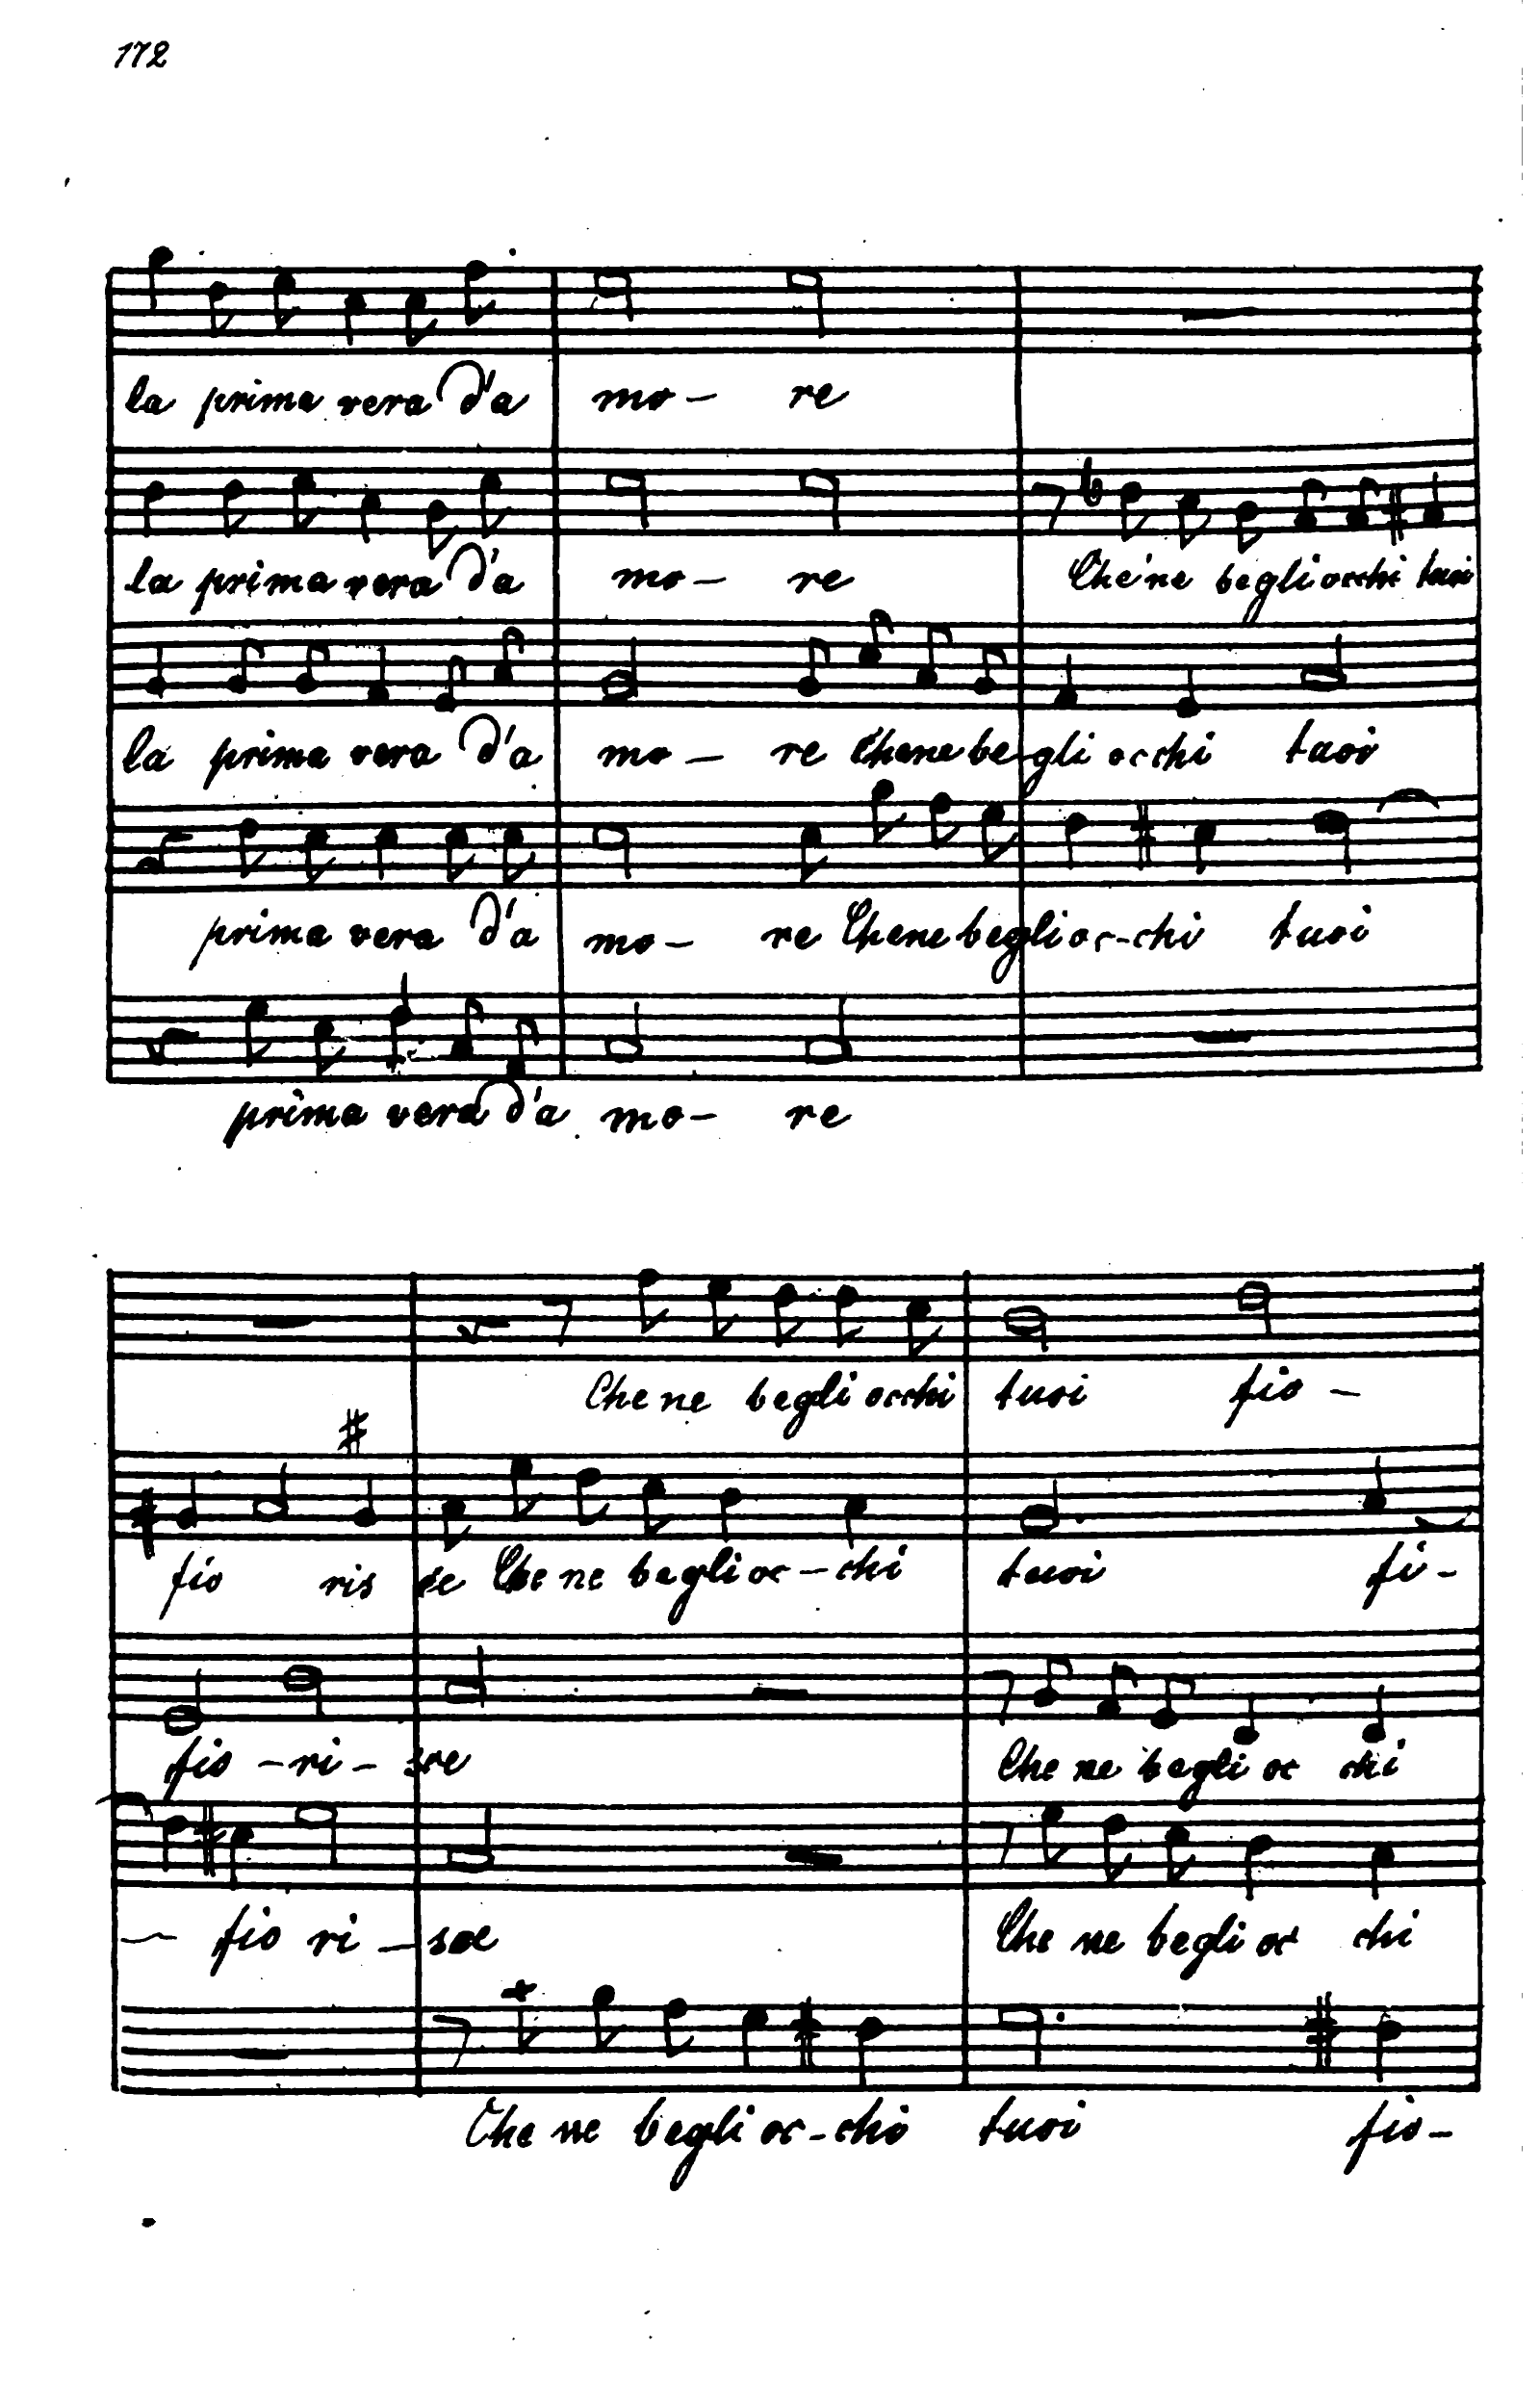 172
la prima vera d'a mo- re
la prima vera d'a mo- re Che'ne begli occhi tuoi
la prima vera d'a mo- re Chene be gli occhi tuoi
prima vera d'a mo- re Chene begli oc-chi tuoi
prima vera d'a mo- re
Che ne begli occhi tuoi fio-
fio ris se Che ne begli oc-chi tuoi fi-
fio -ri- sse Che ne begli oc chi
- fio ri- sse Che ne begli oc chi
Che ne begli oc-chi tuoi fio-